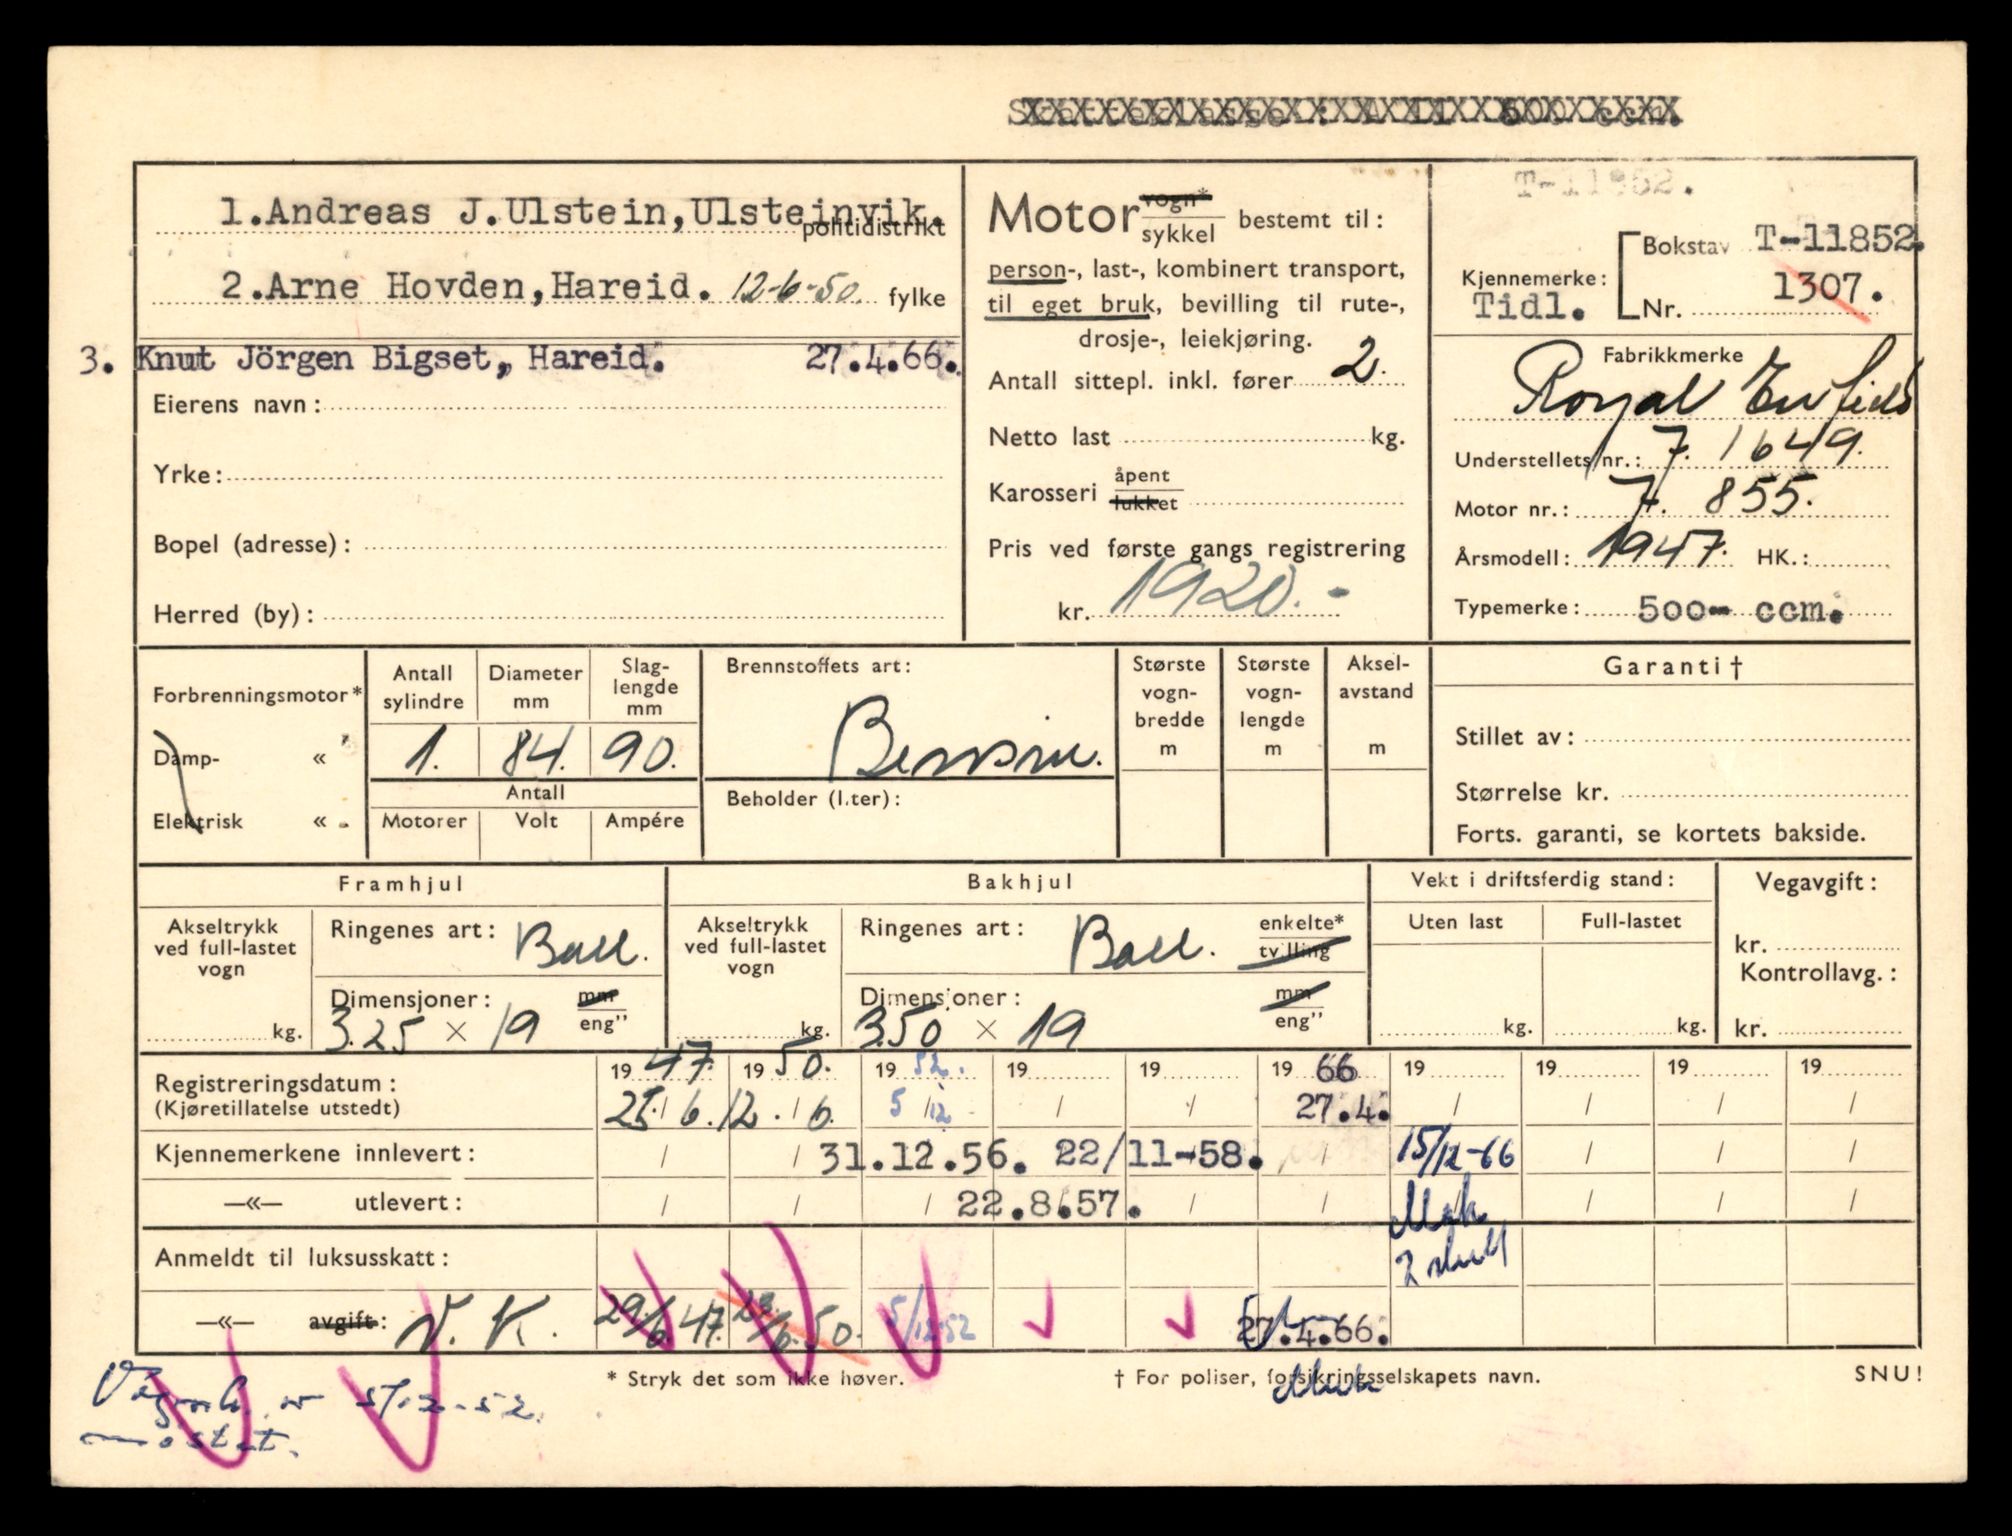 T-11852.
1.Andreas J.Ulstein,Ulsteinvik.
politidistrikt
2.Arne Hovden,Hareid. 12-6-50. fylke
3. Knut Jörgen Bigset, Hareid. 27.4.66.
Eierens navn:
Yrke:
Bopel (adresse):
Herred (by):
Motor vogn* sykkel bestemt til:
person-, last-, kombinert transport,
til eget bruk, bevilling til rute-,
drosje-, leiekjøring.
Antall sittepl. inkl. fører 2.
Netto last kg.
Karosseri åpent lukket
Pris ved første gangs registrering
kr. 1920.-
Kjennemerke: Bokstav T-11852.
Tidl. Nr. 1307.
Fabrikkmerke
Royal Enfield
Understellets nr.: 7. 1649.
Motor nr.: 7. 855.
Årsmodell: 1947. HK.:
Typemerke: 500- ccm.
Forbrenningsmotor*
Damp- «
Elektrisk «
Antall sylindre Diameter mm Slag-lengde mm
1. 84. 90.
Antall
Motorer Volt Ampére
Brennstoffets art:
Bensin.
Beholder (liter):
Største vogn-bredde m
Største vogn-lengde m
Aksel-avstand m
Garanti †
Stillet av:
Størrelse kr.
Forts. garanti, se kortets bakside.
Framhjul
Akseltrykk ved full-lastet vogn kg.
Ringenes art: Ball.
Dimensjoner: mm eng"
3.25 × 19
Bakhjul
Akseltrykk ved full-lastet vogn kg.
Ringenes art: Ball. enkelte* tvilling
Dimensjoner: mm eng"
3.50 × 19
Vekt i driftsferdig stand:
Uten last Full-lastet
kg. kg.
Vegavgift:
kr.
Kontrollavg.:
kr.
Registreringsdatum: 19 47. 19 50. 19 52. 19 19 19 66 19 19 19 19
(Kjøretillatelse utstedt) 25./6. 12./6. 5/12 / / 27.4. / / / /
Kjennemerkene innlevert: / / 31.12.56. 22/11-58. / 15/12-66 / / /
—«— utlevert: / / / 22.8.57. / / / / /
Anmeldt til luksusskatt:
—«— avgift: V. K. 29/6. 47. 5/12-52 27.4.66.
* Stryk det som ikke høver.
† For poliser, forsikringsselskapets navn.
SNU!
5/12-52.